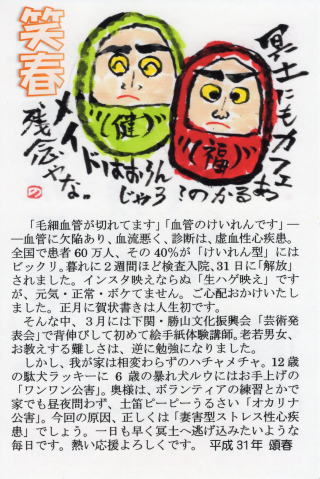 笑春
冥土にもカフェあ
るかのう
メイドはおらん
じゃろ
残念やな。
健
福
「毛細血管が切れてます」「血管のけいれんです」―
―血管に欠陥あり、血流悪く、診断は、虚血性心疾患。
全国で患者60万人、その40%が「けいれん型」には
ビックリ。暮れに2週間ほど検査入院、31日に「解放」
されました。インスタ映えならぬ「生ハゲ映え」です
が、元気・正常・ボケてません。ご心配おかけいたし
ました。正月に賀状書きは人生初です。
そんな中、3月には下関・勝山文化振興会「芸術発
表会」で背伸びして初めて絵手紙体験講師。老若男女、
お教えする難しさは、逆に勉強になりました。
しかし、我が家は相変わらずのハチャメチャ。12歳
の駄犬ラッキーに6歳の暴れ犬ルウにはお手上げの
「ワンワン公害」。奥様は、ボランティアの練習とかで
家でも昼夜問わず、土笛ピーピーうるさい「オカリナ
公害」。今回の原因、正しくは「妻害型ストレス性心疾
患」でしょう。一日も早く冥土へ逃げ込みたいような
毎日です。熱い応援よろしくです。 平成31年 頌春